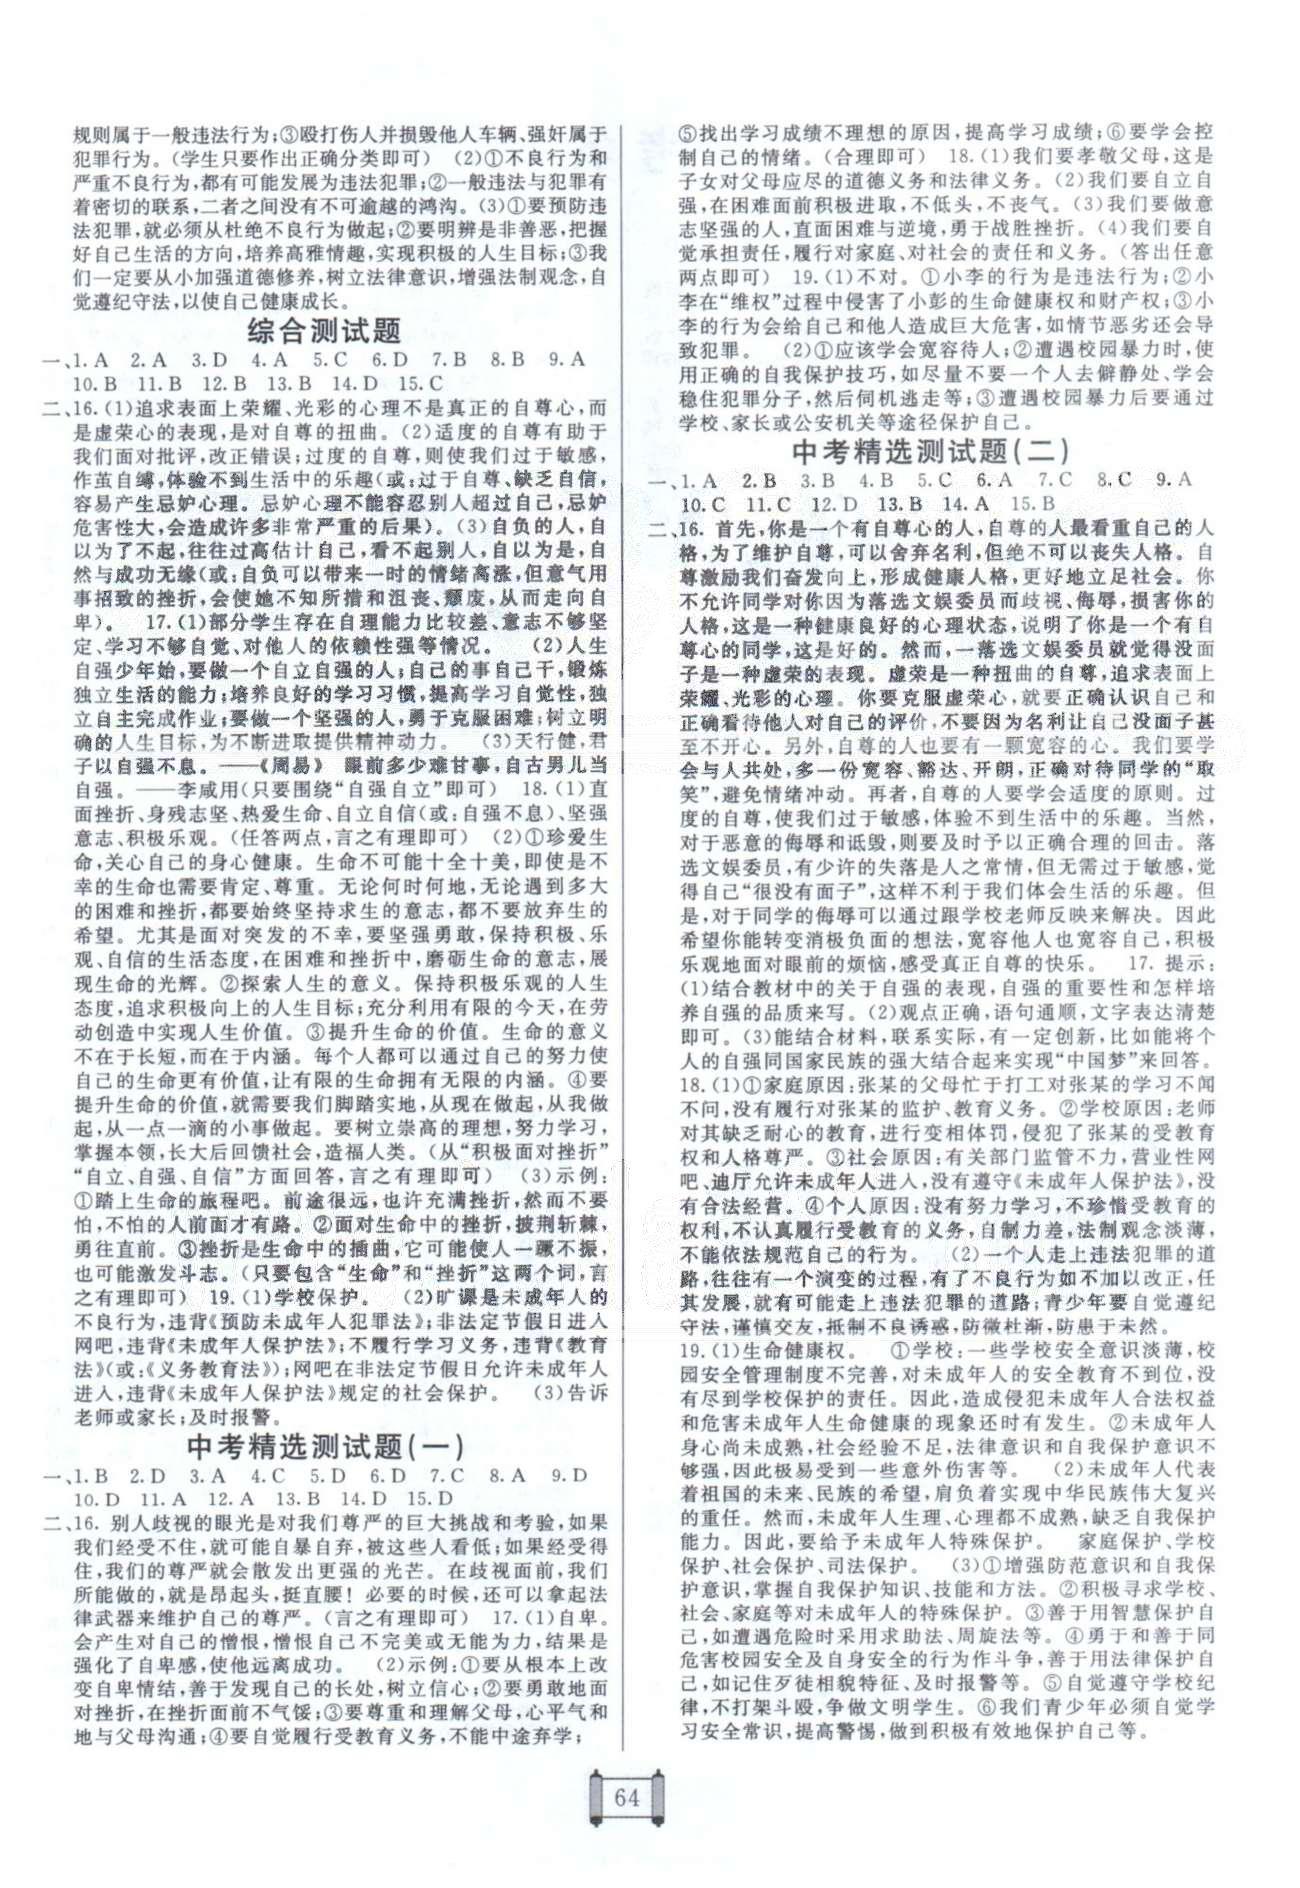 规则属于一般违法行为;③殴打伤人并损毁他人车辆、强奸属于
犯罪行为。(学生只要作出正确分类即可) (2)①不良行为和
严重不良行为,都有可能发展为违法犯罪;②一般违法与犯罪有
着密切的联系,二者之间没有不可逾越的鸿沟。(3)①要预防违
法犯罪,就必须从杜绝不良行为做起;②要明辨是非善恶,把握
好自己生活的方向,培养高雅情趣,实现积极的人生目标;③我
们一定要从小加强道德修养,树立法律意识,增强法制观念,自
觉遵纪守法,以使自己健康成长。
综合测试题
一、1. A 2. A 3. D 4. A 5. C 6. D 7. B 8. B 9. A
10. B 11. B 12. B 13. B 14. D 15. C
二、16. (1)追求表面上荣耀、光彩的心理不是真正的自尊心,而
是虚荣心的表现,是对自尊的扭曲。(2)适度的自尊有助于
我们面对批评,改正错误;过度的自尊,则使我们过于敏感,
作茧自缚,体验不到生活中的乐趣(或:过于自尊、缺乏自信,
容易产生忌妒心理。忌妒心理不能容忍别人超过自己,忌妒
危害性大,会造成许多非常严重的后果)。(3)自负的人,自
以为了不起,往往过高估计自己,看不起别人,自以为是,自
然与成功无缘(或:自负可以带来一时的情绪高涨,但意气用
事招致的挫折,会使她不知所措和沮丧、颓废,从而走向自
卑)。 17. (1)部分学生存在自理能力比较差、意志不够坚
定、学习不够自觉、对他人的依赖性强等情况。 (2)人生
自强少年始,要做一个自立自强的人;自己的事自己干,锻炼
独立生活的能力;培养良好的学习习惯,提高学习自觉性,独
立自主完成作业;要做一个坚强的人,勇于克服困难;树立明
确的人生目标,为不断进取提供精神动力。 (3)天行健,君
子以自强不息。——《周易》 眼前多少难甘事,自古男儿当
自强。——李咸用(只要围绕“自强自立”即可) 18. (1)直
面挫折、身残志坚、热爱生命、自立自信(或:自强不息)、坚强
意志、积极乐观。(任答两点,言之有理即可) (2)①珍爱生
命,关心自己的身心健康。生命不可能十全十美,即使是不
幸的生命也需要肯定、尊重。无论何时何地,无论遇到多大
的困难和挫折,都要始终坚持求生的意志,都不要放弃生的
希望。尤其是面对突发的不幸,要坚强勇敢,保持积极、乐
观、自信的生活态度,在困难和挫折中,磨砺生命的意志,展
现生命的光辉。②探索人生的意义。保持积极乐观的人生
态度,追求积极向上的人生目标;充分利用有限的今天,在劳
动创造中实现人生价值。③提升生命的价值。生命的意义
不在于长短,而在于内涵。每个人都可以通过自己的努力使
自己的生命更有价值,让有限的生命拥有无限的内涵。④要
提升生命的价值,就需要我们脚踏实地,从现在做起,从我做
起,从一点一滴的小事做起。要树立崇高的理想,努力学习,
掌握本领,长大后回馈社会,造福人类。(从“积极面对挫折”
“自立、自强、自信”方面回答,言之有理即可) (3)示例:
①踏上生命的旅程吧。前途很远,也许充满挫折,然而不要
怕,不怕的人前面才有路。②面对生命中的挫折,披荆斩棘,
勇往直前。③挫折是生命中的插曲,它可能使人一蹶不振,
也可能激发斗志。(只要包含“生命”和“挫折”这两个词,言
之有理即可) 19. (1)学校保护。 (2)旷课是未成年人的
不良行为,违背《预防未成年人犯罪法》;非法定节假日进入
网吧,违背《未成年人保护法》;不履行学习义务,违背《教育
法》(或:《义务教育法》);网吧在非法定节假日允许未成年人
进入,违背《未成年人保护法》规定的社会保护。 (3)告诉
老师或家长;及时报警。
中考精选测试题(一)
一、1. B 2. D 3. A 4. C 5. D 6. D 7. C 8. A 9. D
10. D 11. A 12. A 13. B 14. D 15. D
二、16. 别人歧视的眼光是对我们尊严的巨大挑战和考验,如果
我们经受不住,就可能自暴自弃,被这些人看低;如果经受得
住,我们的尊严就会散发出更强的光芒。在歧视面前,我们
所能做的,就是昂起头,挺直腰!必要的时候,还可以拿起法
律武器来维护自己的尊严。(言之有理即可) 17. (1)自卑。
会产生对自己的憎恨,憎恨自己不完美或无能为力,结果是
强化了自卑感,使他远离成功。 (2)示例:①要从根本上改
变自卑情结,善于发现自己的长处,树立信心;②要勇敢地面
对挫折,在挫折面前不气馁;③要尊重和理解父母,心平气和
地与父母沟通;④要自觉履行受教育义务,不能中途弃学;
⑤找出学习成绩不理想的原因,提高学习成绩;⑥要学会控
制自己的情绪。(合理即可) 18. (1)我们要孝敬父母,这是
子女对父母应尽的道德义务和法律义务。(2)我们要自立自
强,在困难面前积极进取,不低头,不丧气。(3)我们要做意
志坚强的人,直面困难与逆境,勇于战胜挫折。(4)我们要自
觉承担责任,履行对家庭、对社会的责任和义务。(答出任意
两点即可) 19. (1)不对。①小李的行为是违法行为;②小
李在“维权”过程中侵害了小彭的生命健康权和财产权;③小
李的行为会给自己和他人造成巨大危害,如情节恶劣还会导
致犯罪。 (2)①应该学会宽容待人;②遭遇校园暴力时,使
用正确的自我保护技巧,如尽量不要一个人去僻静处、学会
稳住犯罪分子,然后伺机逃走等;③遭遇校园暴力后要通过
学校、家长或公安机关等途径保护自己。
中考精选测试题(二)
一、1. A 2. B 3. B 4. B 5. C 6. A 7. C 8. C 9. A
10. C 11. C 12. D 13. B 14. A 15. B
二、16. 首先,你是一个有自尊心的人,自尊的人最看重自己的人
格,为了维护自尊,可以舍弃名利,但绝不可以丧失人格。自
尊激励我们奋发向上,形成健康人格,更好地立足社会。你
不允许同学对你因为落选文娱委员而歧视、侮辱,损害你的
人格,这是一种健康良好的心理状态,说明了你是一个有自
尊心的同学,这是好的。然而,一落选文娱委员就觉得没面
子是一种虚荣的表现。虚荣是一种扭曲的自尊,追求表面上
荣耀、光彩的心理。你要克服虚荣心,就要正确认识自己和
正确看待他人对自己的评价,不要因为名利让自己没面子甚
至不开心。另外,自尊的人也要有一颗宽容的心。我们要学
会与人共处,多一份宽容、豁达、开朗,正确对待同学的“取
笑”,避免情绪冲动。再者,自尊的人要学会适度的原则。过
度的自尊,使我们过于敏感,体验不到生活中的乐趣。当然,
对于恶意的侮辱和诋毁,则要及时予以正确合理的回击。落
选文娱委员,有少许的失落是人之常情,但无须过于敏感,觉
得自己“很没有面子”,这样不利于我们体会生活的乐趣。但
是,对于同学的侮辱可以通过跟学校老师反映来解决。因此
希望你能转变消极负面的想法,宽容他人也宽容自己,积极
乐观地面对眼前的烦恼,感受真正自尊的快乐。 17. 提示:
(1)结合教材中的关于自强的表现,自强的重要性和怎样培
养自强的品质来写。(2)观点正确,语句通顺,文字表达清楚
即可。(3)能结合材料,联系实际,有一定创新,比如能将个
人的自强同国家民族的强大结合起来实现“中国梦”来回答。
18. (1)①家庭原因:张某的父母忙于打工对张某的学习不闻
不问,没有履行对张某的监护、教育义务。②学校原因:老师
对其缺乏耐心的教育,进行变相体罚,侵犯了张某的受教育
权和人格尊严。③社会原因:有关部门监管不力,营业性网
吧、迪厅允许未成年人进入,没有遵守《未成年人保护法》,没
有合法经营。④个人原因:没有努力学习,不珍惜受教育的
权利,不认真履行受教育的义务,自制力差,法制观念淡薄,
不能依法规范自己的行为。 (2)一个人走上违法犯罪的道
路,往往有一个演变的过程,有了不良行为如不加以改正,任
其发展,就有可能走上违法犯罪的道路;青少年要自觉遵纪
守法,谨慎交友,抵制不良诱惑,防微杜渐,防患于未然。
19. (1)生命健康权。 ①学校:一些学校安全意识淡薄,校
园安全管理制度不完善,对未成年人的安全教育不到位,没
有尽到学校保护的责任。因此,造成侵犯未成年人合法权益
和危害未成年人生命健康的现象还时有发生。②未成年人
身心尚未成熟,社会经验不足,法律意识和自我保护意识不
够强,因此极易受到一些意外伤害等。 (2)未成年人代表
着祖国的未来、民族的希望,肩负着实现中华民族伟大复兴
的重任。然而,未成年人生理、心理都不成熟,缺乏自我保护
能力。因此,要给予未成年人特殊保护。 家庭保护、学校
保护、社会保护、司法保护。 (3)①增强防范意识和自我保
护意识,掌握自我保护知识、技能和方法。②积极寻求学校、
社会、家庭等对未成年人的特殊保护。③善于用智慧保护自
己,如遭遇危险时采用求助法、周旋法等。④勇于和善于同
危害校园安全及自身安全的行为作斗争,善于用法律保护自
己,如记住歹徒相貌特征、及时报警等。⑤自觉遵守学校纪
律,不打架斗殴,争做文明学生。⑥我们青少年必须自觉学
习安全常识,提高警惕,做到积极有效地保护自己等。
64